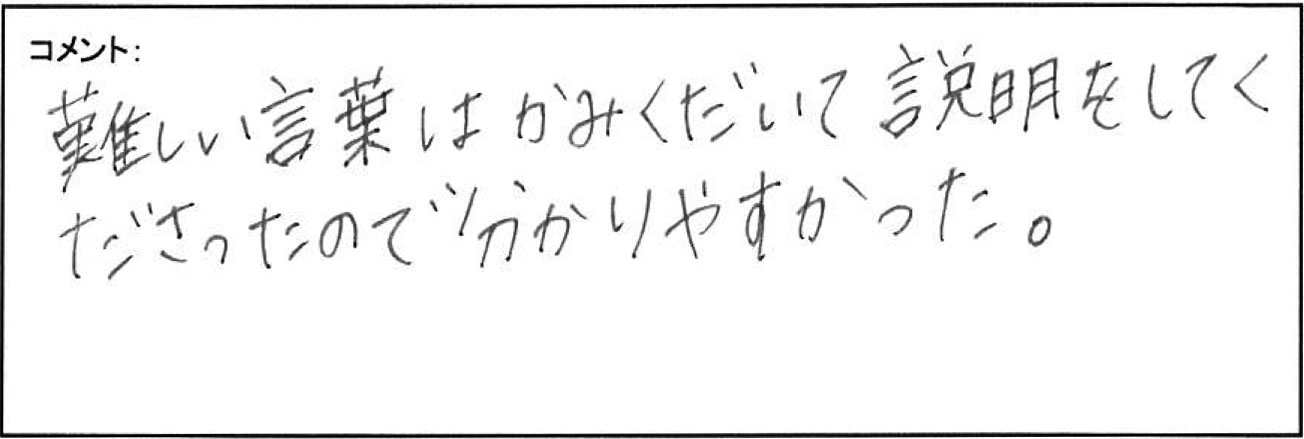 コメント:
難しい言葉はかみくだいて説明をしてく
ださったので分かりやすかった。